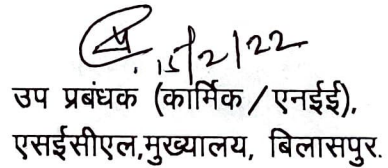 15/2/22
उप प्रबंधक (कार्मिक/एनईई),
एसईसीएल,मुख्यालय, बिलासपुर